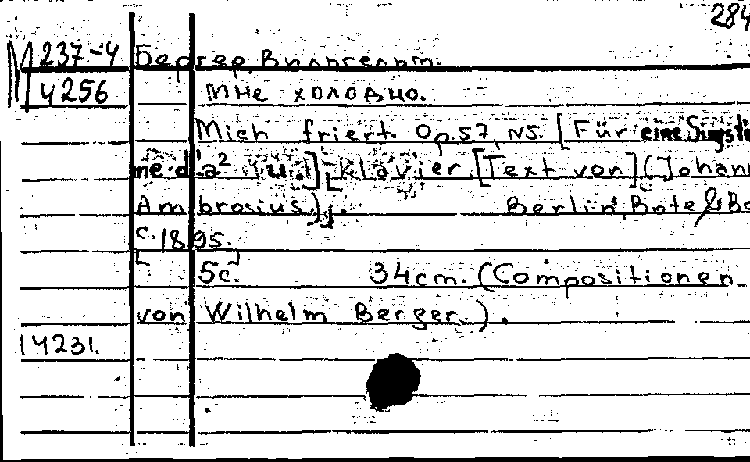 284
М 237-4 Бергер, Вильгельм.
4256 Мне холодно.
Mich friert. Op.57, N5. [Für eine Singstim
me d'-a² [u.]; Klavier. [Text von] (Johann
Ambrosius). Berlin, Bote & Bo
c. 1895.
[5c.] 34cm. (Compositionen
von Wilhelm Berger.).
14231.